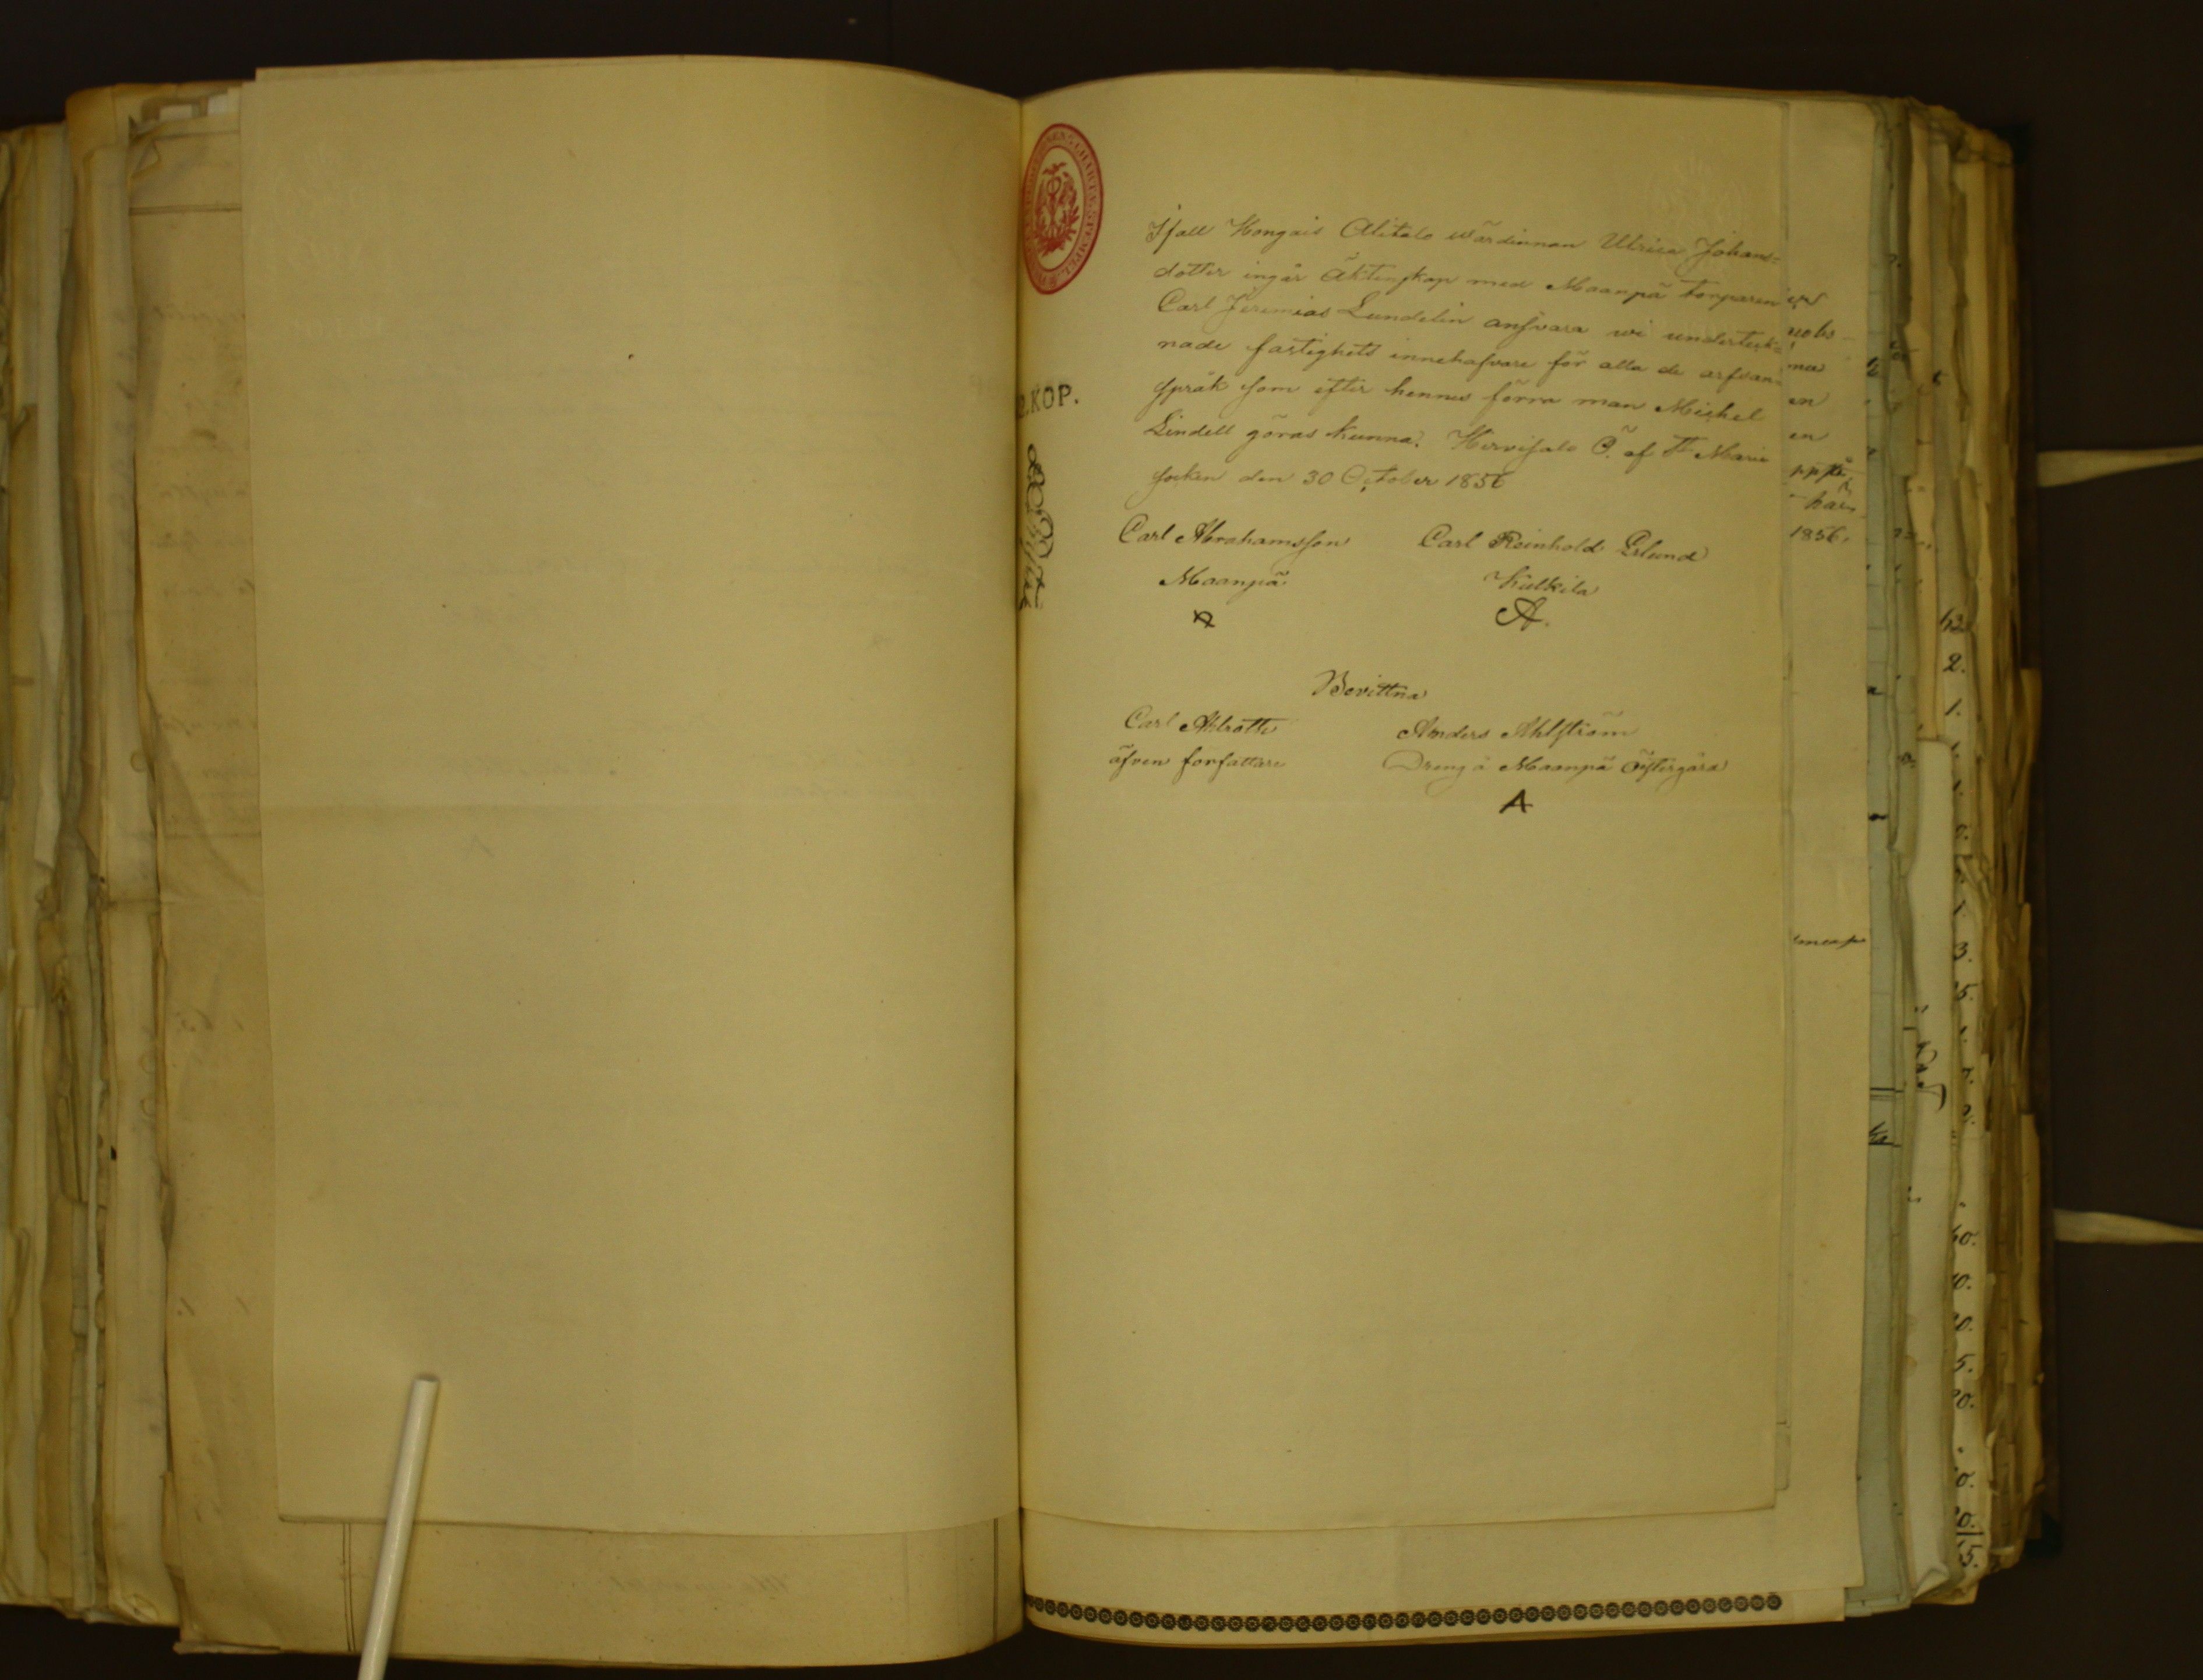 Ifall Hongais Alitalo wärdinnan Ulrica Johans=
dotter ingår äktenskap med Maanpä torparen
Carl Jeremias Lundelin ansvara wi undertek=
nade fastighets innehafvare för alla de arfsan=
språk som efter hennes förra man Michel
Lindell göras kunna. Hirvisalo Ö. af St Marie
socken den 30 October 1856
Carl Abrahamsson Carl Reinhold Erlund
Maanpä Kulkila
A.
Bevittna
Carl Ahlroth Anders Ahlström
äfven författare Dreng å Maanpä Östergård
A
KOP.
1856.